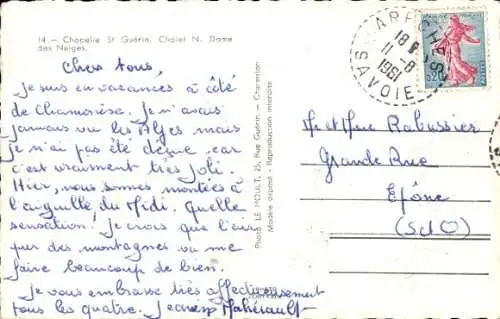 14. - Chapelle St Guérin. Chalet N. Dame
des Neiges.
Chers tous,
Je suis en vacances à côté
de Chamonix. Je n'avais
jamais vu les Alpes mais
je n'ai pas été déçue car
c'est vraiment très joli.
Hier, nous sommes montées à
l'aiguille du Midi. Quelle
sensation! Je crois que l'air
pur des montagnes va me
faire beaucoup de bien.
Je vous embrasse très affectueusement
tous les quatre.
Photo LE MOULT, 25, Rue Guérin - Charenton
Modèle déposé - Reproduction interdite
18 H
11-8
1961
SAVOIE
0,20
M et Mme Rabussier
Grande Rue
Epône
(S et O)